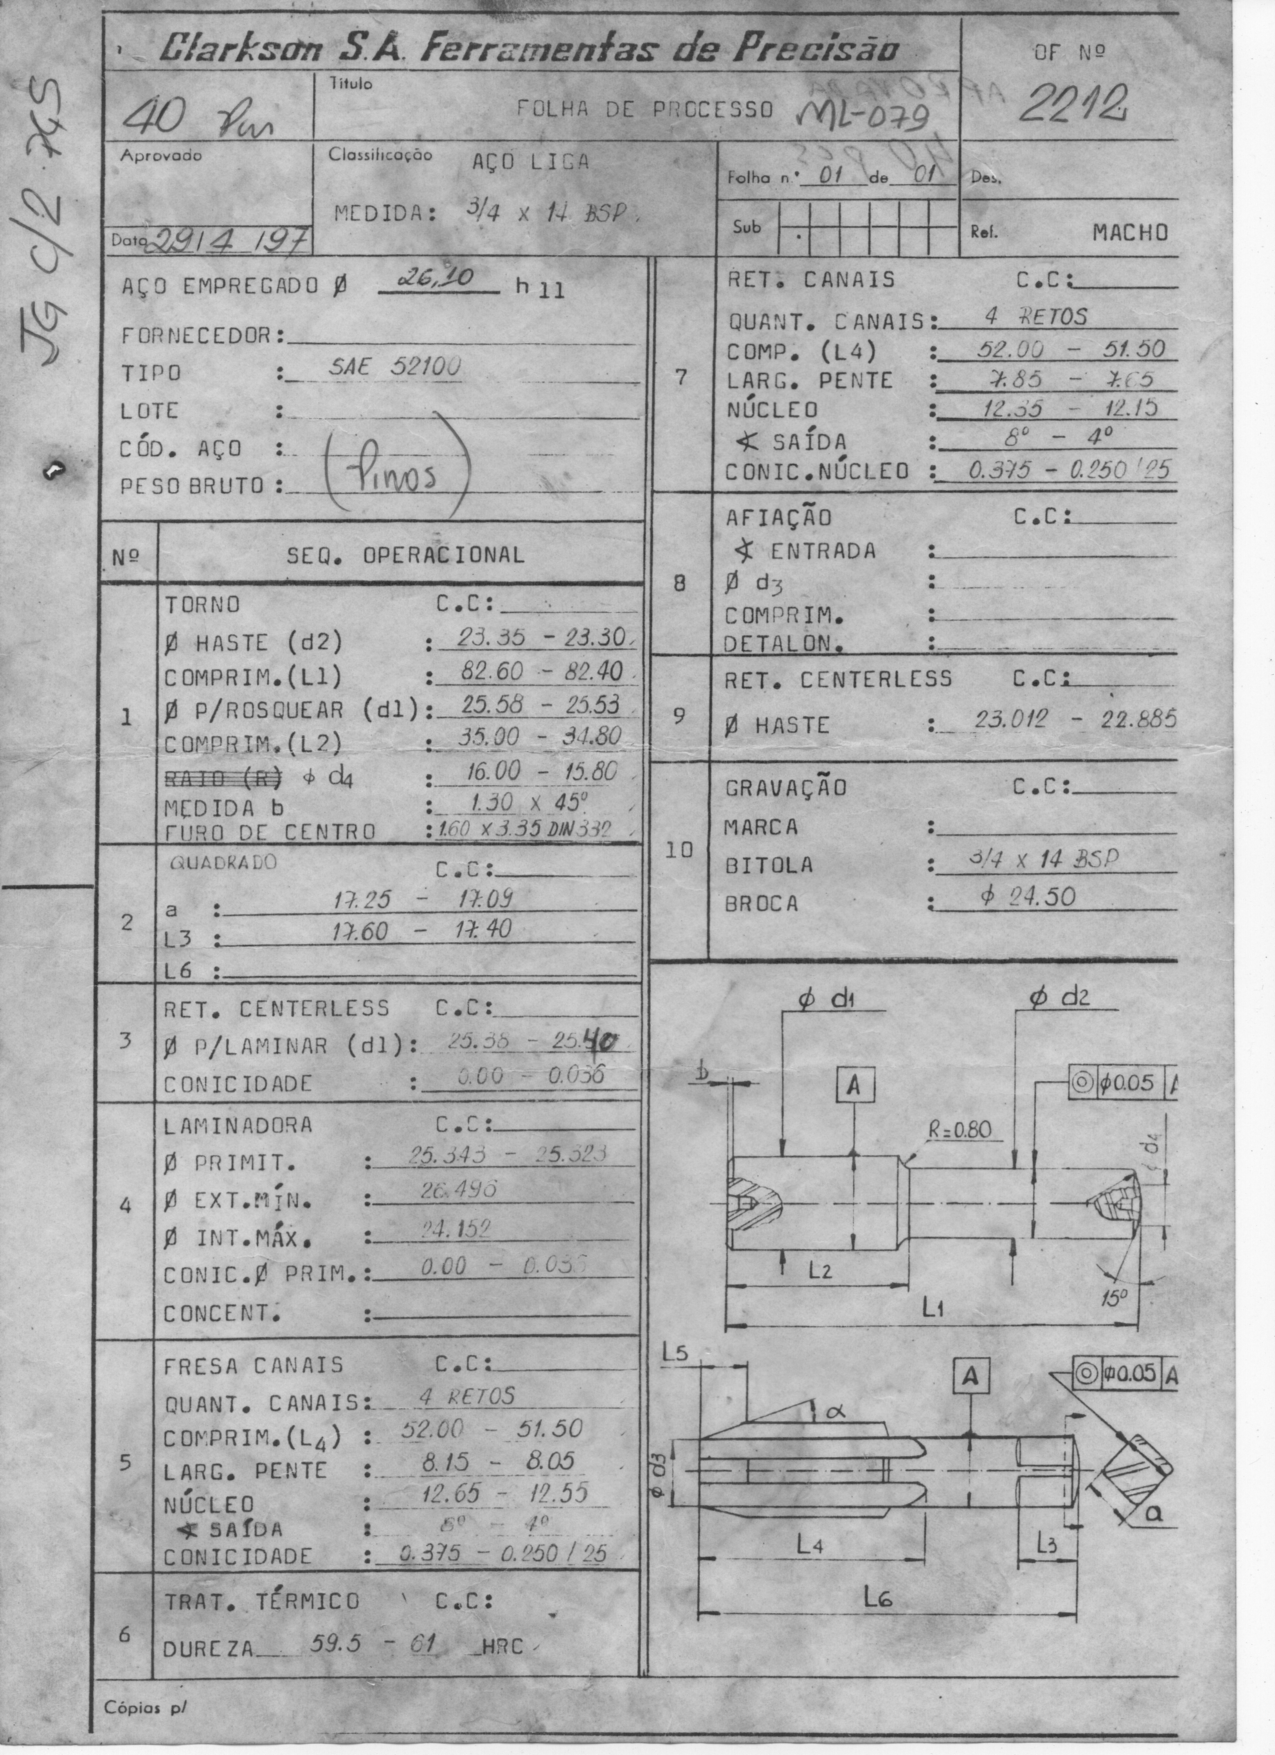 Clarkson S.A. Ferramentas de Precisão
OF Nº
2212
40
Título
FOLHA DE PROCESSO ML-079
Aprovado
Data 29/4/97
Classificação AÇO LIGA
MEDIDA: 3/4 x 14 BSP
Folha n.º 01 de 01
Des.
Sub
Ref. MACHO
JG C/2 PÇS
AÇO EMPREGADO Ø 26,10 h 11
FORNECEDOR:
TIPO : SAE 52100
LOTE :
CÓD. AÇO :
(Pinos)
PESO BRUTO :
Nº SEQ. OPERACIONAL
1
TORNO C.C:
Ø HASTE (d2) : 23.35 - 23.30
COMPRIM.(L1) : 82.60 - 82.40
Ø P/ROSQUEAR (d1): 25.58 - 25.53
COMPRIM.(L2) : 35.00 - 34.80
RAIO (R) ϕ d4 : 16.00 - 15.80
MEDIDA b : 1.30 x 45º
FURO DE CENTRO : 1.60 x 3.35 DIN 332
2
QUADRADO C.C:
a : 17.25 - 17.09
L3 : 17.60 - 17.40
L6 :
3
RET. CENTERLESS C.C:
Ø P/LAMINAR (d1): 25.38 - 25.40
CONICIDADE : 0.00 - 0.036
4
LAMINADORA C.C:
Ø PRIMIT. : 25.343 - 25.323
Ø EXT.MÍN. : 26.496
Ø INT.MÁX. : 24.152
CONIC.Ø PRIM.: 0.00 -
CONCENT. :
5
FRESA CANAIS C.C:
QUANT. CANAIS: 4 RETOS
COMPRIM.(L4) : 52.00 - 51.50
LARG. PENTE : 8.15 - 8.05
NÚCLEO : 12.65 - 12.55
∢ SAÍDA : - 4º
CONICIDADE : 0.375 - 0.250 / 25
6
TRAT. TÉRMICO C.C:
DUREZA 59.5 - 61 HRC
Cópias p/
7
RET. CANAIS C.C:
QUANT. CANAIS: 4 RETOS
COMP. (L4) : 52.00 - 51.50
LARG. PENTE : 7.85 - 7.65
NÚCLEO : 12.35 - 12.15
∢ SAÍDA : 8º - 4º
CONIC.NÚCLEO : 0.375 - 0.250 / 25
8
AFIAÇÃO C.C:
∢ ENTRADA :
Ø d3 :
COMPRIM. :
DETALON. :
9
RET. CENTERLESS C.C:
Ø HASTE : 23.012 - 22.885
10
GRAVAÇÃO C.C:
MARCA :
BITOLA : 3/4 x 14 BSP
BROCA : ϕ 24.50
ϕ d1
ϕ d2
b
A
◎ ϕ0.05 A
R=0.80
d4
L2
L1
15º
L5
A
◎ ϕ0.05 A
α
ϕ d3
a
L4
L3
L6